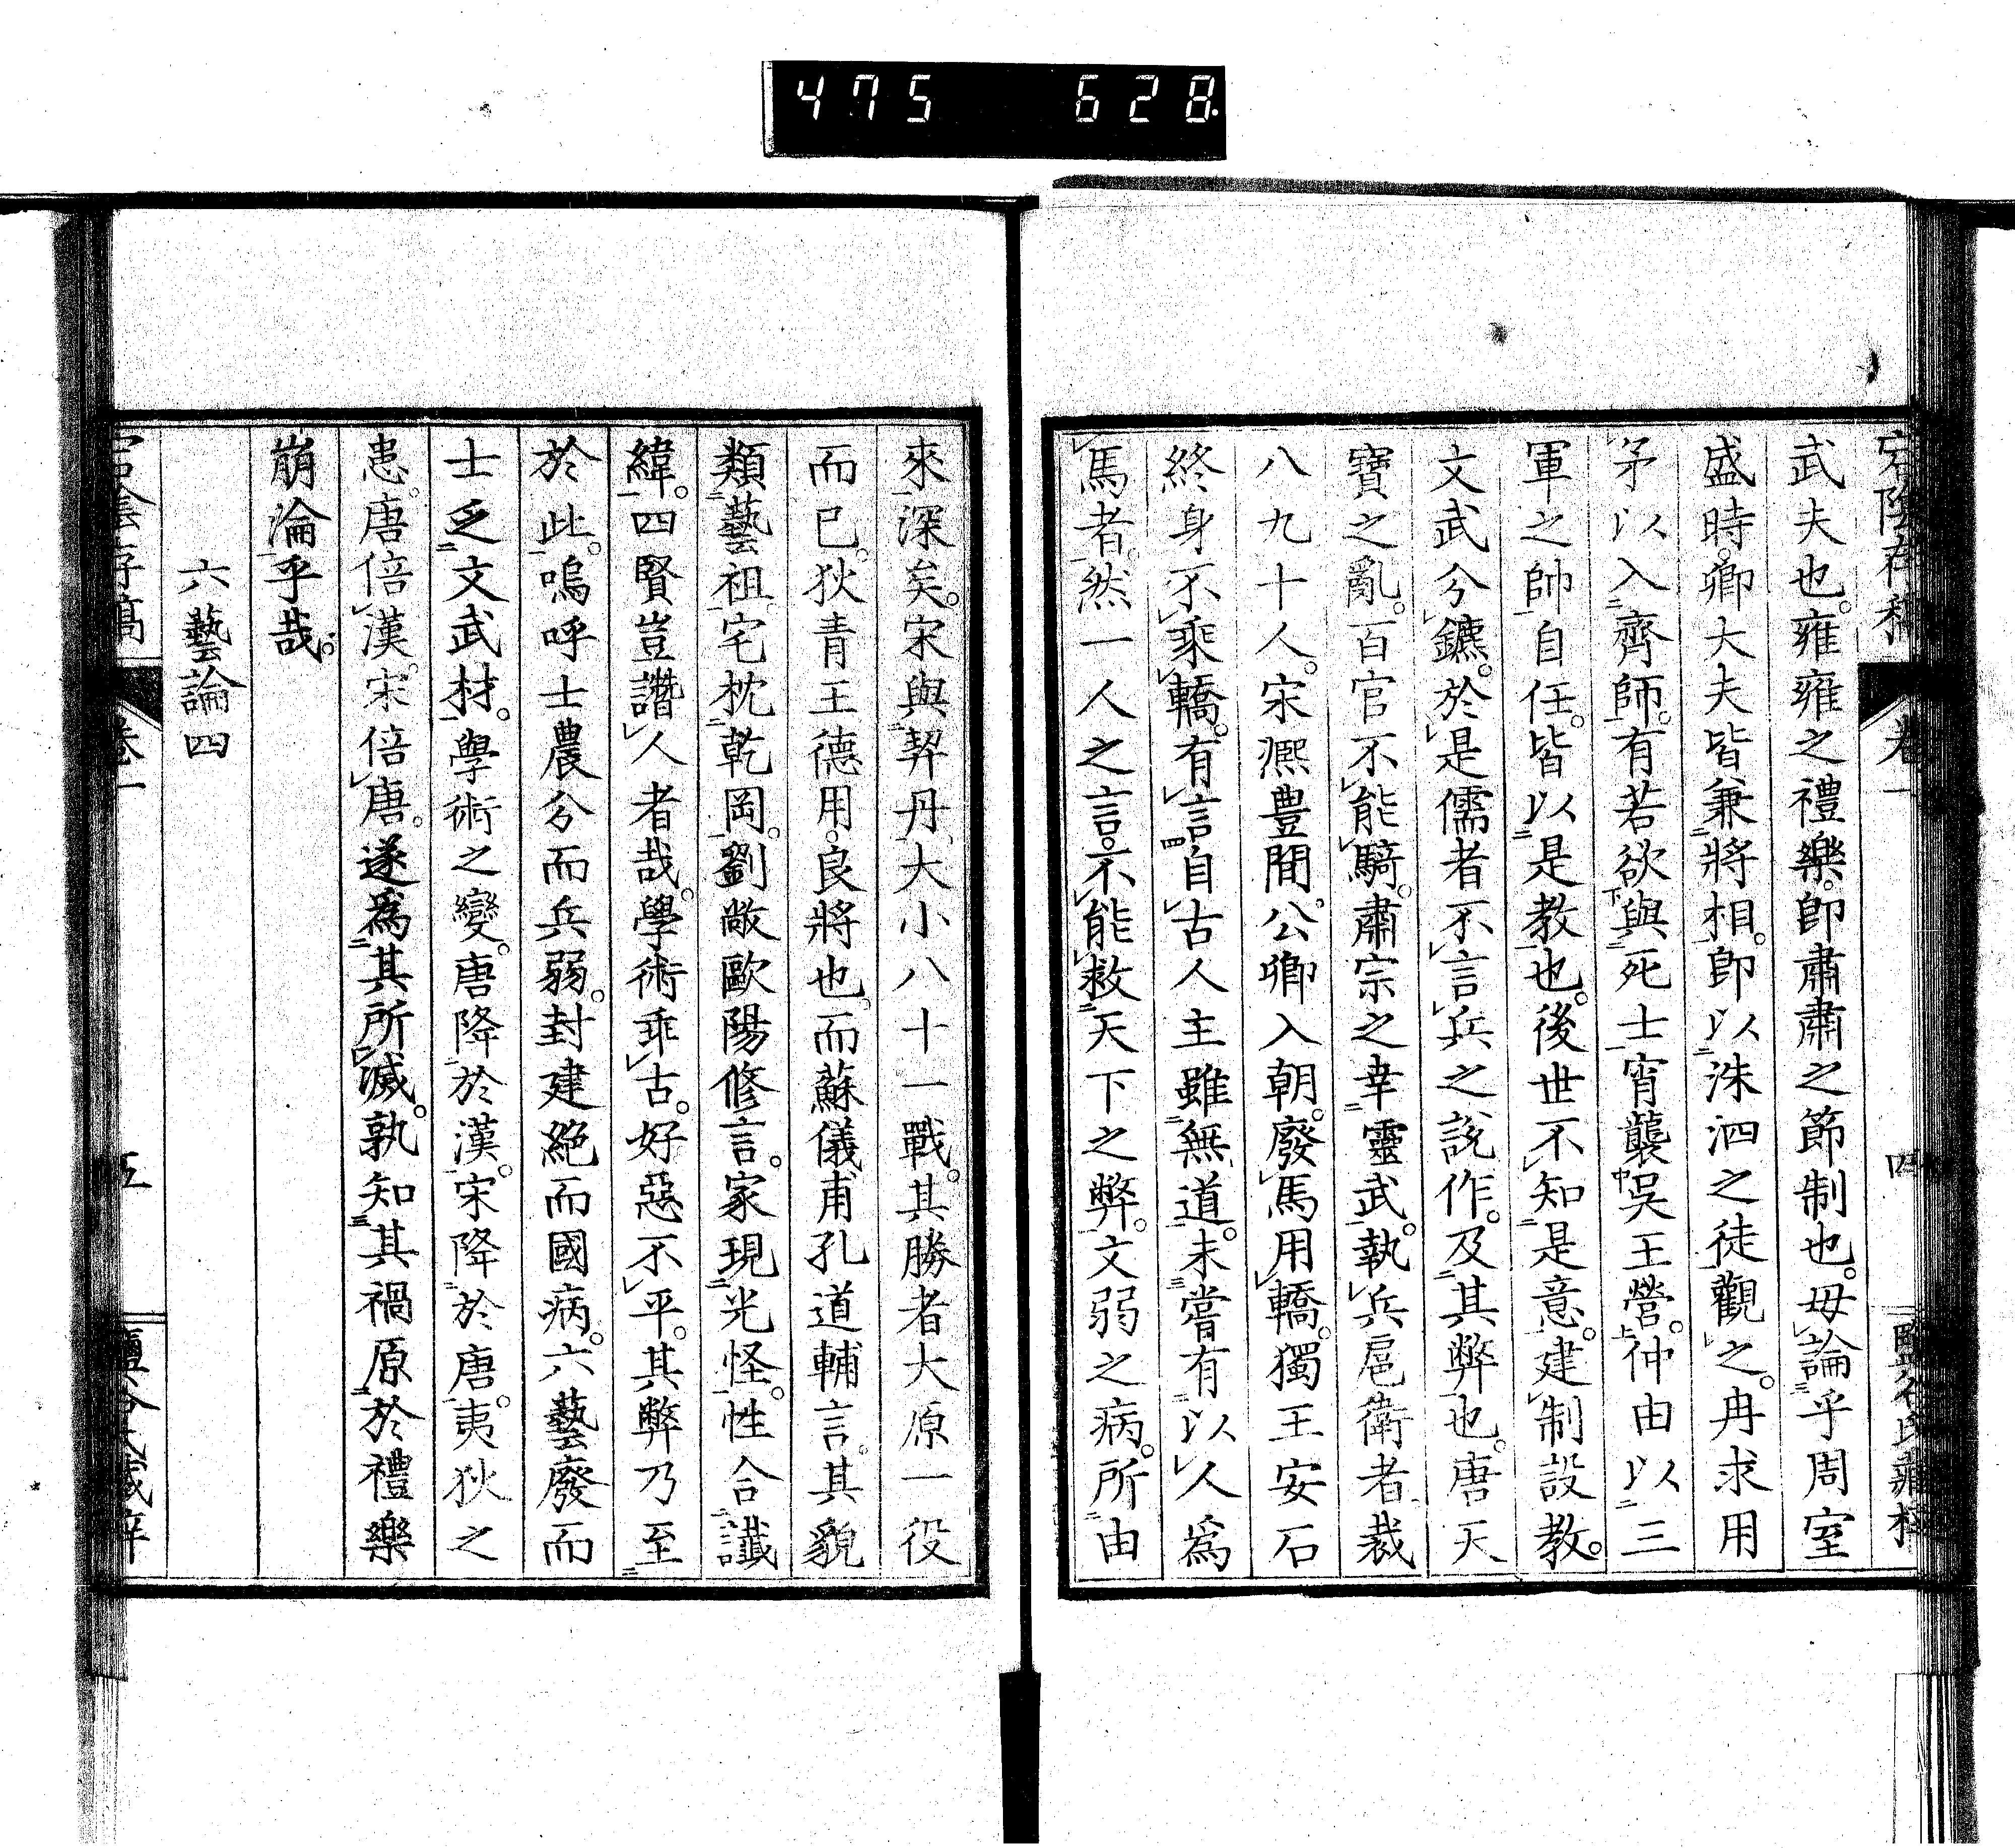 475 628
宕陰存稿 卷一 四
武夫也。雍雍之禮樂。卽肅肅之節制也。毋論乎周室
盛時。卿大夫皆兼將相。卽以洙泗之徒觀之。冉求用
矛以入齊師。有若欲與死士宵襲吳王營。仲由以三
軍之帥自任。皆以是教也。後世不知是意。建制設教。
文武分鑣。於是儒者不言兵之說作。及其弊也。唐天
寶之亂。百官不能騎。肅宗之幸靈武。執兵扈衛者。裁
八九十人。宋熈豊間。公卿入朝。廢馬用轎。獨王安石
終身不乘轎。有言自古人主雖無道。未嘗有以人爲
馬者。然一人之言。不能救天下之弊。文弱之病。所由
來深矣。宋與契丹大小八十一戰。其勝者大原一役
而已。狄青王德用。良將也。而蘇儀甫孔道輔言。其貌
類藝祖。宅枕乾岡。劉敞歐陽修言。家現光怪。性合讖
緯。四賢豈譖人者哉。學術乖古。好惡不平。其弊乃至
於此。嗚呼士農分而兵弱。封建絕而國病。六藝廢而
士乏文武材。學術之變。唐降於漢。宋降於唐。夷狄之
患。唐倍漢。宋倍唐。遂爲其所滅。孰知其禍原於禮樂
崩淪乎哉。
六藝論四
宕陰存稿 卷一 五